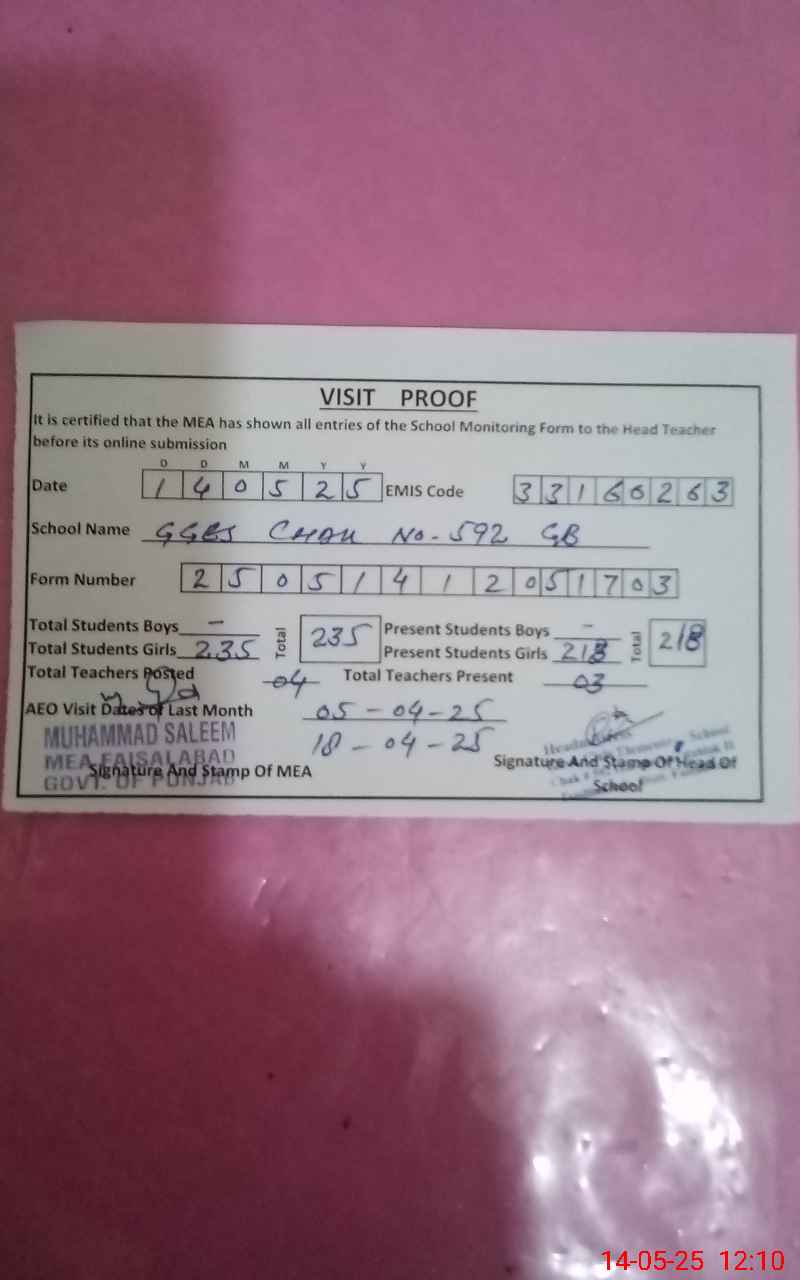 VISIT PROOF
It is certified that the MEA has shown all entries of the School Monitoring Form to the Head Teacher
before its online submission
D D M M Y Y
Date 1 4 0 5 2 5 EMIS Code 3 3 1 6 0 2 6 3
School Name GGES CHAK No-592 GB
Form Number 2 5 0 5 1 4 1 2 0 5 1 7 0 3
Total Students Boys - Total 235 Present Students Boys - Total 218
Total Students Girls 235 Present Students Girls 218
Total Teachers Posted 04 Total Teachers Present 03
AEO Visit Dates of Last Month 05-04-25
18-04-25
MUHAMMAD SALEEM
MEA FAISALABAD
GOVT. OF PUNJAB
Signature And Stamp Of MEA
Signature And Stamp Of Head Of
School
14-05-25 12:10